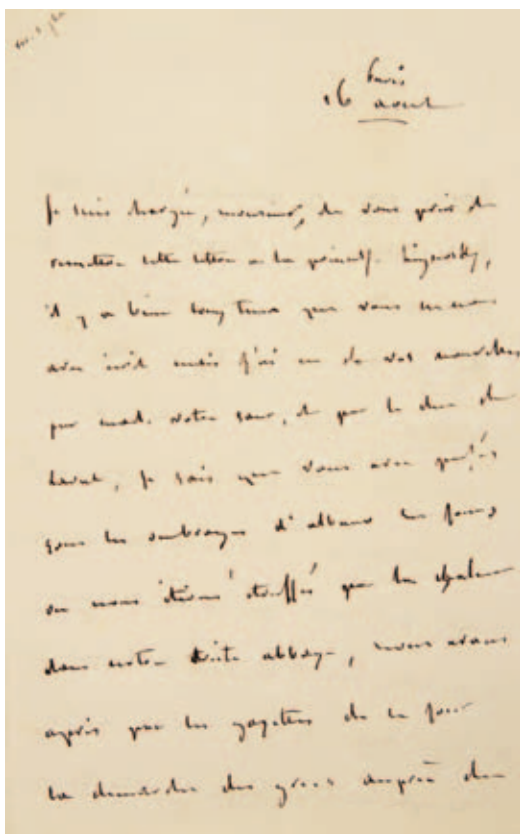 Paris
16 aout
Je suis chargée, monsieur, de vous prier de
remettre cette lettre a la princesse
il y a bien long tems que vous m avez
ecrit mais j'ai eu de vos nouvelles
par made votre sœur, et par le duc de
Laval, je sais que vous avez passés
sous les ombrages d'albano les jours
ou nous étions étouffés par la chaleur
dans notre triste abbaye, nous avons
appris par les gazettes de ce jour
la demarche des grecs auprès du